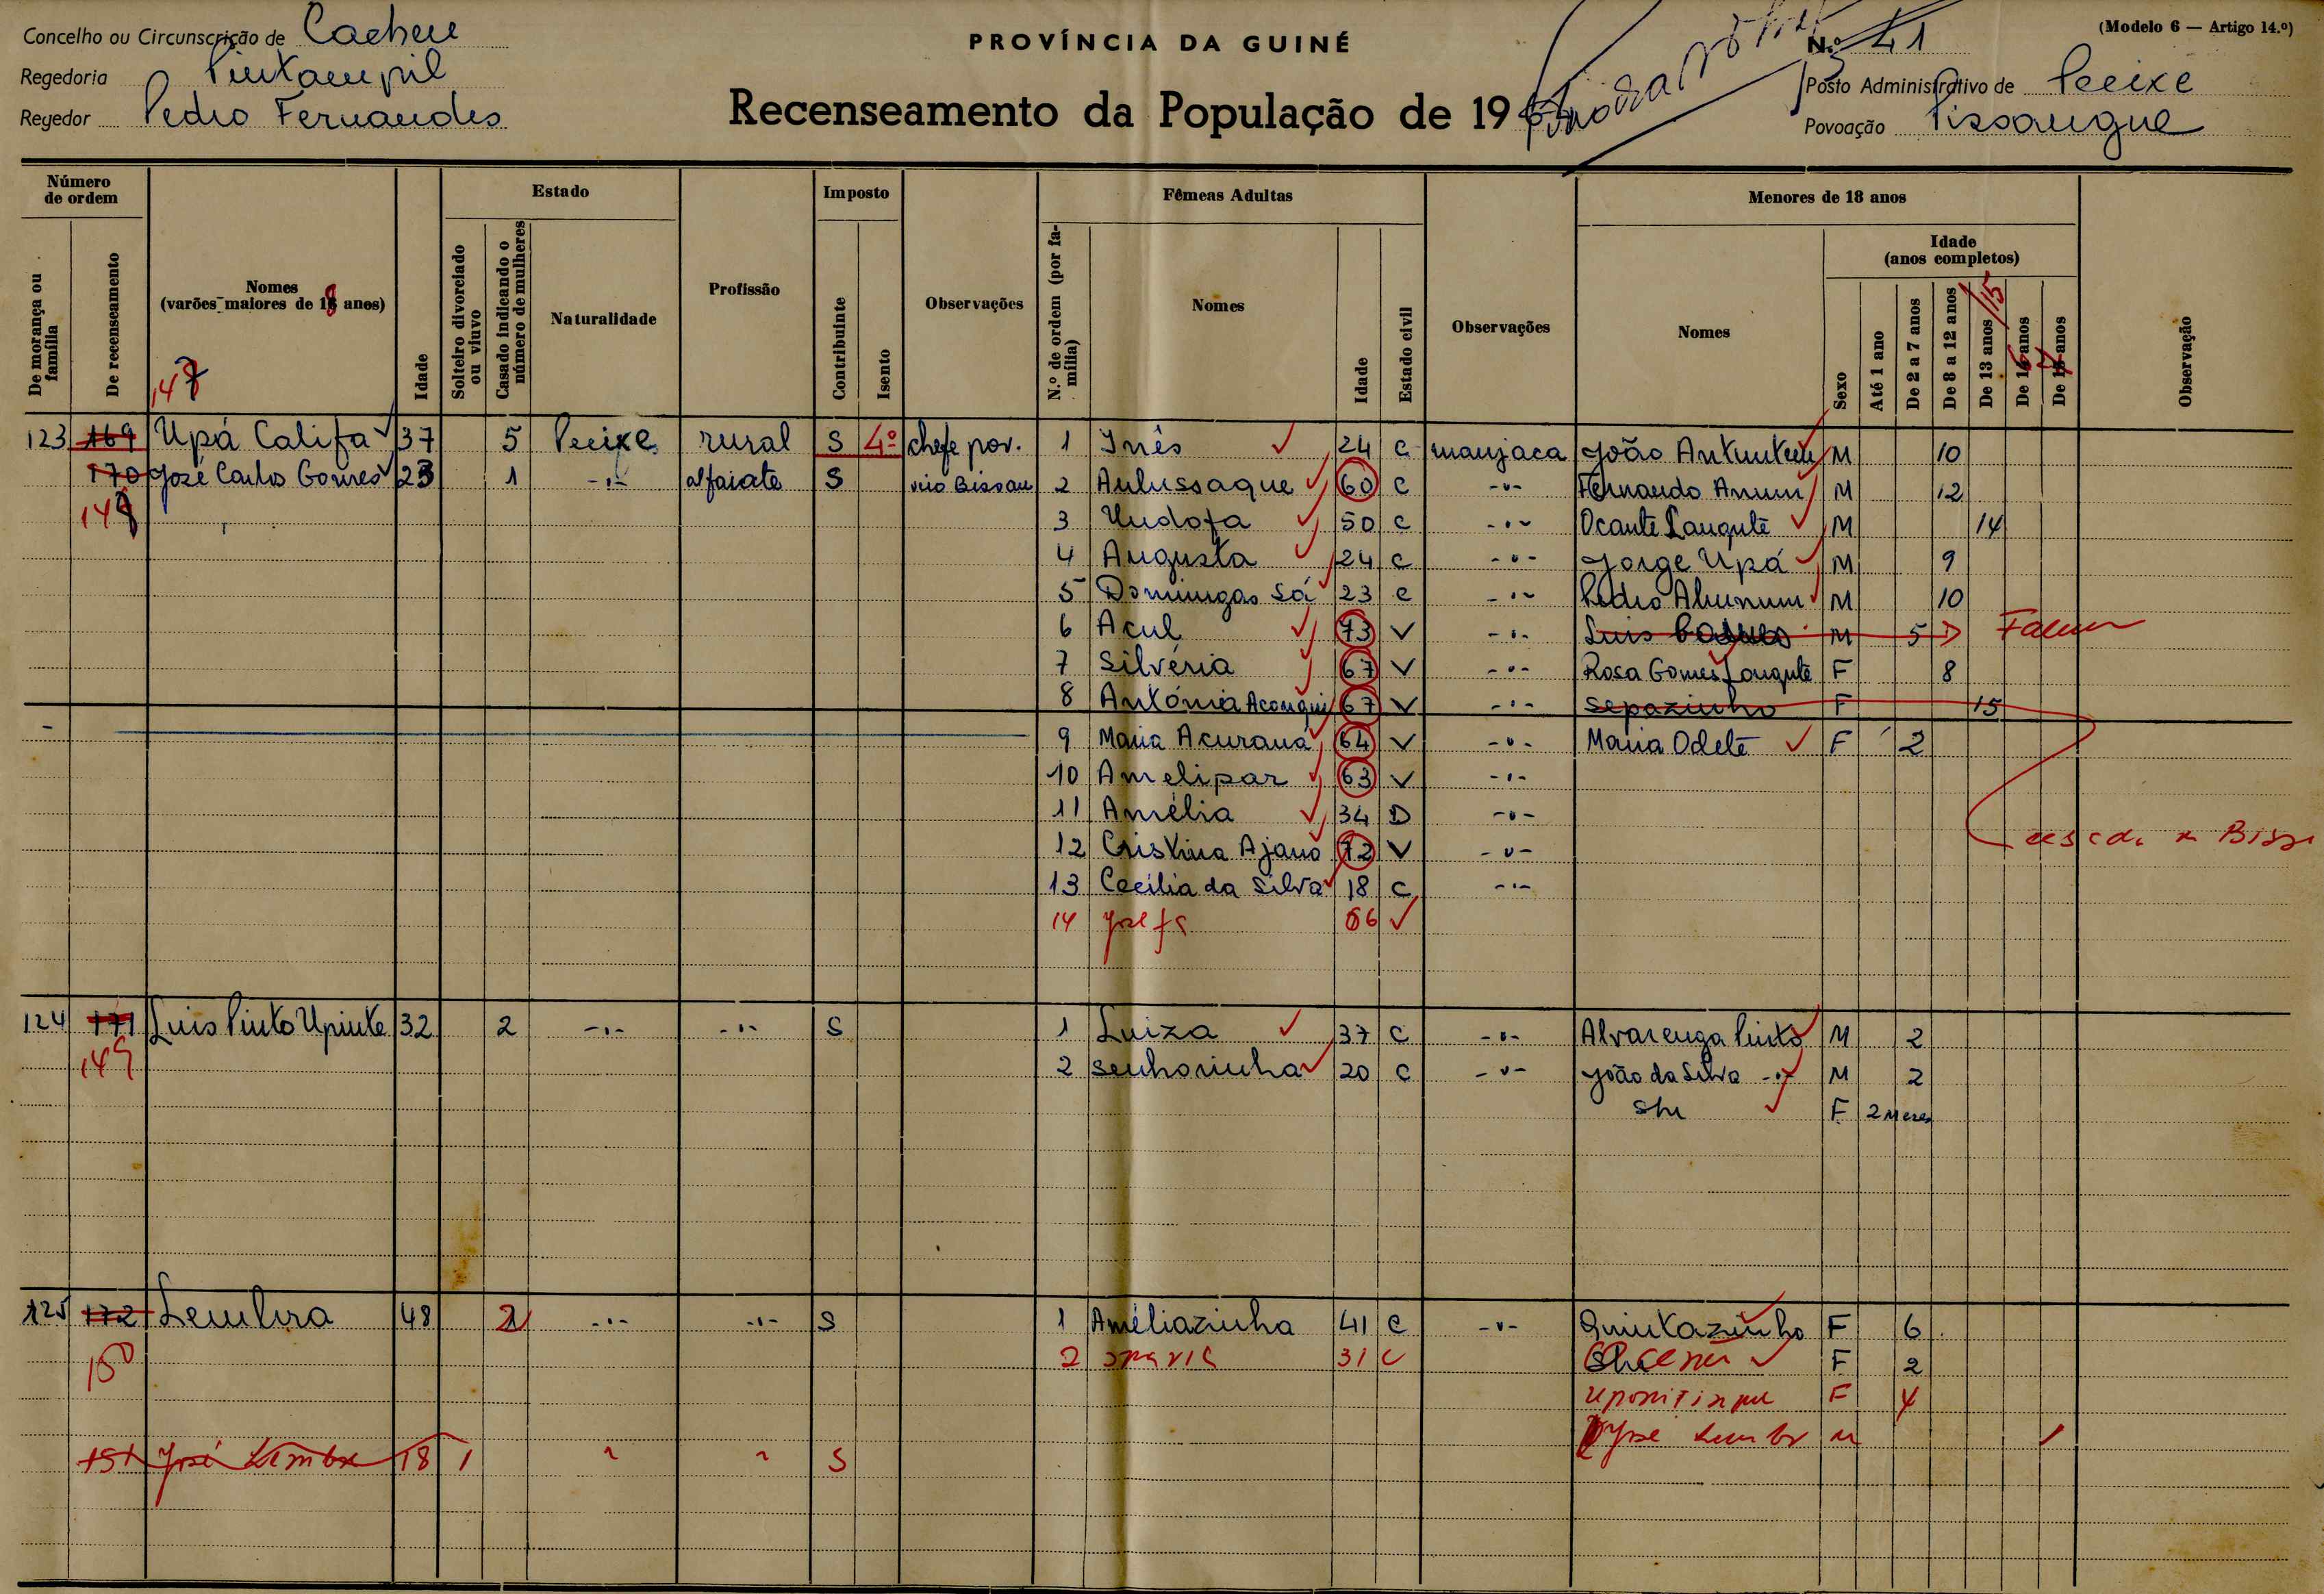 Concelho ou Circunscrição de Cacheu
Regedoria Pintampil
Regedor Pedro Fernandes
PROVÍNCIA DA GUINÉ
Recenseamento da População de 19
(Modelo 6 — Artigo 14.º)
N.º 41
Posto Administrativo de Peeixe
Povoação Pissangue
Número de ordem
De morança ou família
De recenseamento
Nomes
(varões maiores de 18 anos)
Idade
Estado
Solteiro divorciado ou viuvo
Casado indicando o número de mulheres
Naturalidade
Profissão
Imposto
Contribuinte
Isento
Observações
Fêmeas Adultas
N.º de ordem (por família)
Nomes
Idade
Estado civil
Observações
Menores de 18 anos
Nomes
Sexo
Idade
(anos completos)
Até 1 ano
De 2 a 7 anos
De 8 a 12 anos
De 13 anos /15
De 16 anos
De 17 anos
Observação
147
123 169 Upá Califa 37 5 Peeixe rural S 4º chefe pov. 1 Inês 24 C manjaca João M 10
170 José Carlos Gomes 23 1 -"- alfaiate S veio Bissau 2 Aulussaque 60 C -"- Fernando Anum M 12
148 3 Undofa 50 C -"- Ocante Langutê M 14
4 Augusta 24 C -"- Jorge Upá M 9
5 Domingas Sá 23 C -"- Pedro Alumum M 10
6 Acul 73 V -"- Luis M 5 D
7 Silvéria 67 V -"- Rosa Gomes Langutê F 8
8 António Acougui 67 V -"- Sepazinho F 15
9 Maria Acurana 64 V -"- Maria Odete F 2
10 Amelipar 63 V -"-
11 Amélia 34 D -"-
12 Cristina Ajano 72 V -"-
13 Cecília da Silva 18 C -"-
14 Josefa 66 V
124 171 Luis Pinto Upinte 32 2 -"- -"- S 1 Luiza 37 C -"- Alvarenga Pinto M 2
149 2 Senhorinha 20 C -"- João da Silva -"- M 2
F 2 Meses
125 172 Lembra 48 2 -"- -"- S 1 Améliazinha 41 C -"- Quintazinho F 6
150 2 Maria 31 C F 2
F 4
José M
151 José 18 1 " " S